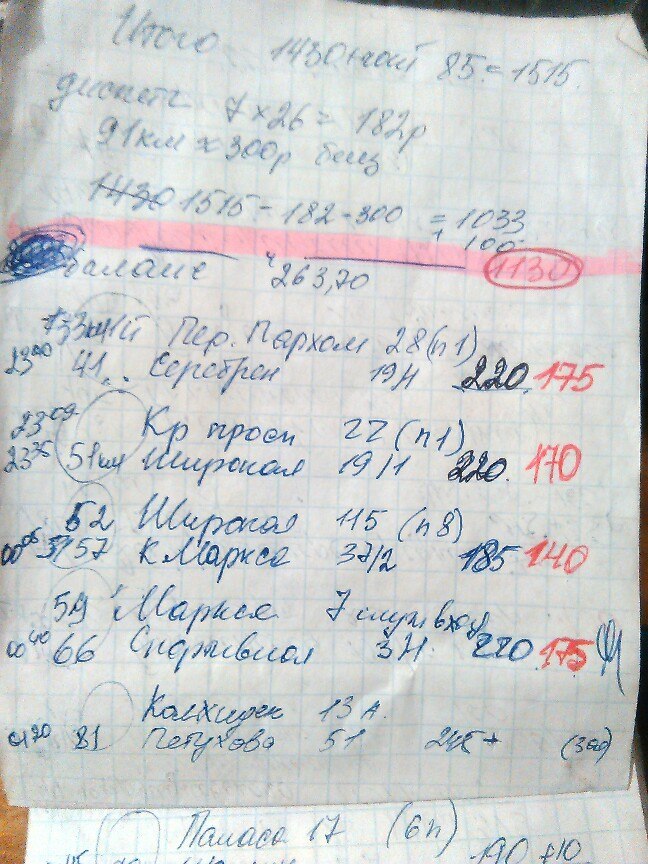 Итого 1430+чай 85 = 1515
7 × 26 = 182р
91км × 300р бенз
1430 1515 - 182 - 300 = 1033
+ 100
баланс 263,70 1130
Пер. Пархом 28 (п1)
23⁰⁰ 41 Серебрен 19/1 220 175
23⁰⁹ Кр просп 22 (п1)
23²⁵ 51км Широкая 19/1 220 170
52 Широкая 115 (п8)
00⁰⁵ 57 К Маркса 37/2 185 140
59 Маркса 7 служ вход
00⁴⁰ 66 Спортивная 3/1 220 175
Колхидск 13А.
01²⁰ 81 Петухова 51 245+
Паласа 17 (6п)
190 +10